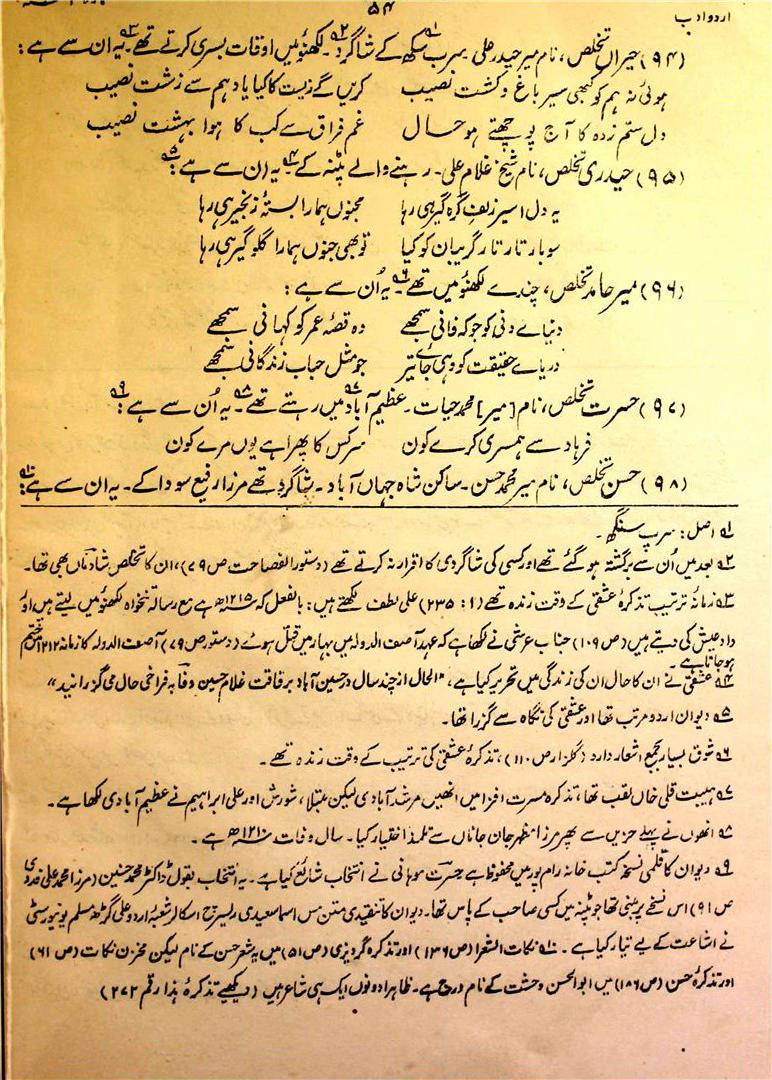 اردو ادب
۵۴
(۹۴) حیراں تخلص، نام میر حیدر علی۔ سرب سکھ؁۱ کے شاگرد؁۲۔ لکھنؤ میں اوقات بسری کرتے تھے؁۳۔ یہ ان سے ہے:
ہوئی نہ ہم کو کبھی سیر باغ و کشت نصیب کریں گے زیست کا کیا یاد ہم سے زشت نصیب
دل ستم زدہ کا آج پوچھتے ہو حال غم فراق سے کب کا ہوا بہشت نصیب
(۹۵) حیدری تخلص، نام شیخ غلام علی۔ رہنے والے پٹنہ کے؁۴۔ یہ ان سے ہے؁۵:
یہ دل اسیر زلفِ گرہ گیر ہی رہا مجنوں ہمارا بستۂ زنجیر ہی رہا
سو بار تار تار گریبان کو کیا تو بھی جنوں ہمارا گلو گیر ہی رہا
(۹۶) میر حامد تخلص، چندے لکھنؤ میں تھے؁۶۔ یہ اُن سے ہے:
دنیاے دنی کو جو کہ فانی سمجھے وہ قصۂ عمر کو کہانی سمجھے
دریاے حقیقت کو وہی جاے تیر جو مثل حباب زندگانی سمجھے
(۹۷) حسرت تخلص، نام [میر] محمد حیات؁۷۔ عظیم آباد میں رہتے تھے؁۸۔ یہ اُن سے ہے؁۹:
فرہاد سے ہمسری کرے کون سر کس کا پھرا ہے یوں مرے کون
(۹۸) حسن تخلص، نام میر محمد حسن۔ ساکن شاہ جہاں آباد۔ شاگرد تھے مرزا رفیع سودا کے۔ یہ ان سے ہے؁۱۰:
؁۱ اصل: سرپ سنگھ۔
؁۲ بعد میں اُن سے برگشتہ ہو گئے تھے اور کسی کی شاگردی کا اقرار نہ کرتے تھے (دستور الفصاحت ص ۷۹)، ان کا تخلص شاد ماں بھی تھا۔
؁۳ زمانۂ ترتیب تذکرۂ عشقی کے وقت زندہ تھے (۱: ۲۳۵) علی لطف لکھتے ہیں: بالفعل کہ ۱۲۱۵ھ ہے مع رسالہ تنخواہ لکھنؤ میں لیتے ہیں اور
داد عیش کی دیتے ہیں (ص ۱۰۹) جناب عرشی نے لکھا ہے کہ عہد آصف الدولہ میں بہار میں قتل ہوے (دستور ص ۷۹) آصف الدولہ کا زمانہ ۱۲۱۲ میں ختم
ہو جاتا ہے۔
؁۴ عشقی نے ان کا حال ان کی زندگی میں تحریر کیا ہے، "الحال از چند سال در حسین آباد بر فاقت غلام حسین وفا بہ فراخی حال می گزرانید"
؁۵ دیوان اردو مرتب تھا اور عشقی کی نگاہ سے گزرا تھا۔
؁۶ شوق بسیار بجمع اشعار دارد (گلزار ص ۱۱۰)، تذکرۂ عشقی کی ترتیب کے وقت زندہ تھے۔
؁۷ ہیبت قلی خاں لقب تھا، تذکرہ مسرت افزا میں انھیں مرشد آبادی لیکن مبتلا، شورش اور علی ابراہیم نے عظیم آبادی لکھا ہے۔
؁۸ انھوں نے پہلے حزیں سے پھر مرزا مظہر جان جاناں سے تلمذ اختیار کیا۔ سال وفات ۱۲۱۰ھ ہے۔
؁۹ دیوان کا قلمی نسخہ کتب خانہ رام پور میں محفوظ ہے حسرت موہانی نے انتخاب شائع کیا ہے۔ یہ انتخاب بقول ڈاکٹر محمد حسنین (مرزا محمد علی فدوی
ص ۹۱) اس نسخے پر مبنی تھا جو پٹنہ میں کسی صاحب کے پاس تھا۔ دیوان کا تنقیدی متن مس اسما سعیدی ریسرچ اسکالر شعبۂ اردو علی گڑھ مسلم یونیورسٹی
نے اشاعت کے لیے تیار کیا ہے۔ ؁۱۰ نکات الشعرا (ص ۱۳۶) اور تذکرہ گردیزی (ص ۵۱) میں یہ شعر حسن کے نام لیکن مخزن نکات (ص ۶۱)
اور تذکرۂ حسن (ص ۱۸۶) میں ابوالحسن وحشت کے نام درج ہے۔ ظاہرا دونوں ایک ہی شاعر ہیں (دیکھیے تذکرۂ ہذا رقم ۲۷۲)